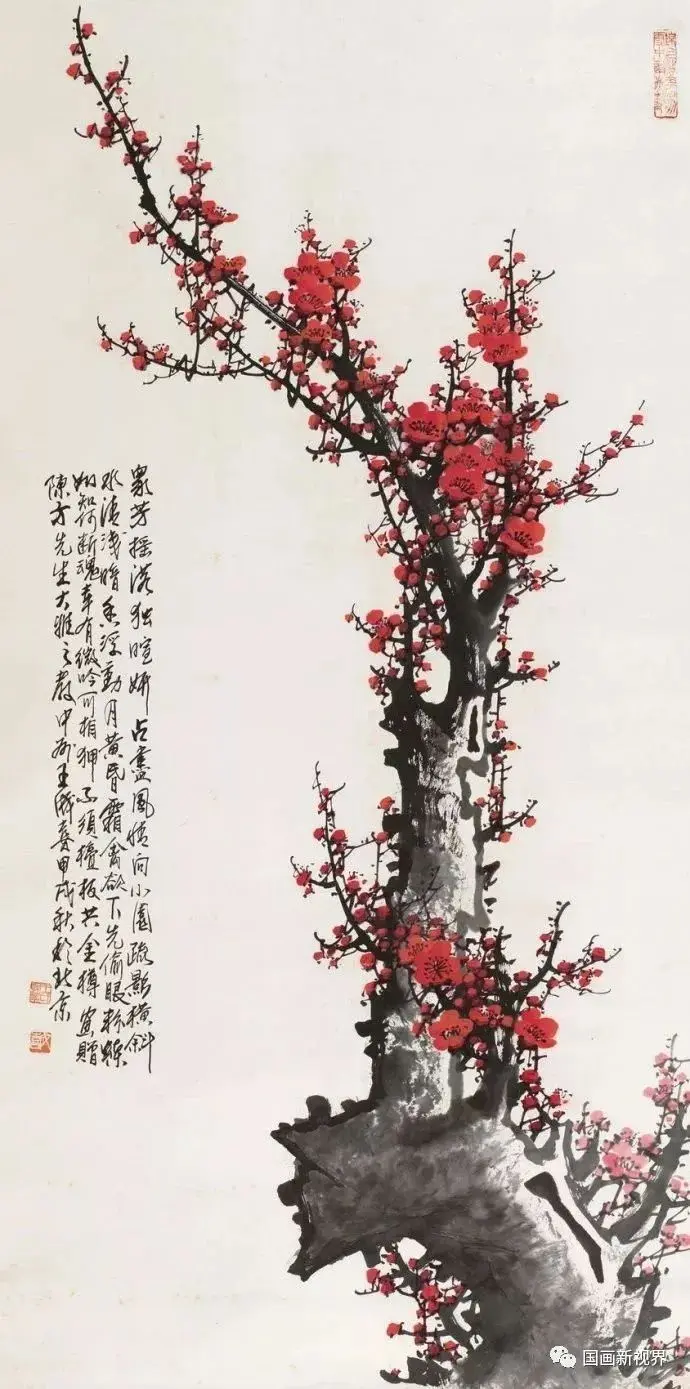 眾芳摇落独暄妍占盡風情向小園疏影横斜
水清浅暗香浮動月黄昏霜禽欲下先偷眼粉蝶
如知何断魂幸有微吟可相狎不須檀板共金樽寫贈
陳方先生大雅之教中州王成喜甲戌秋於北京
国画新视界